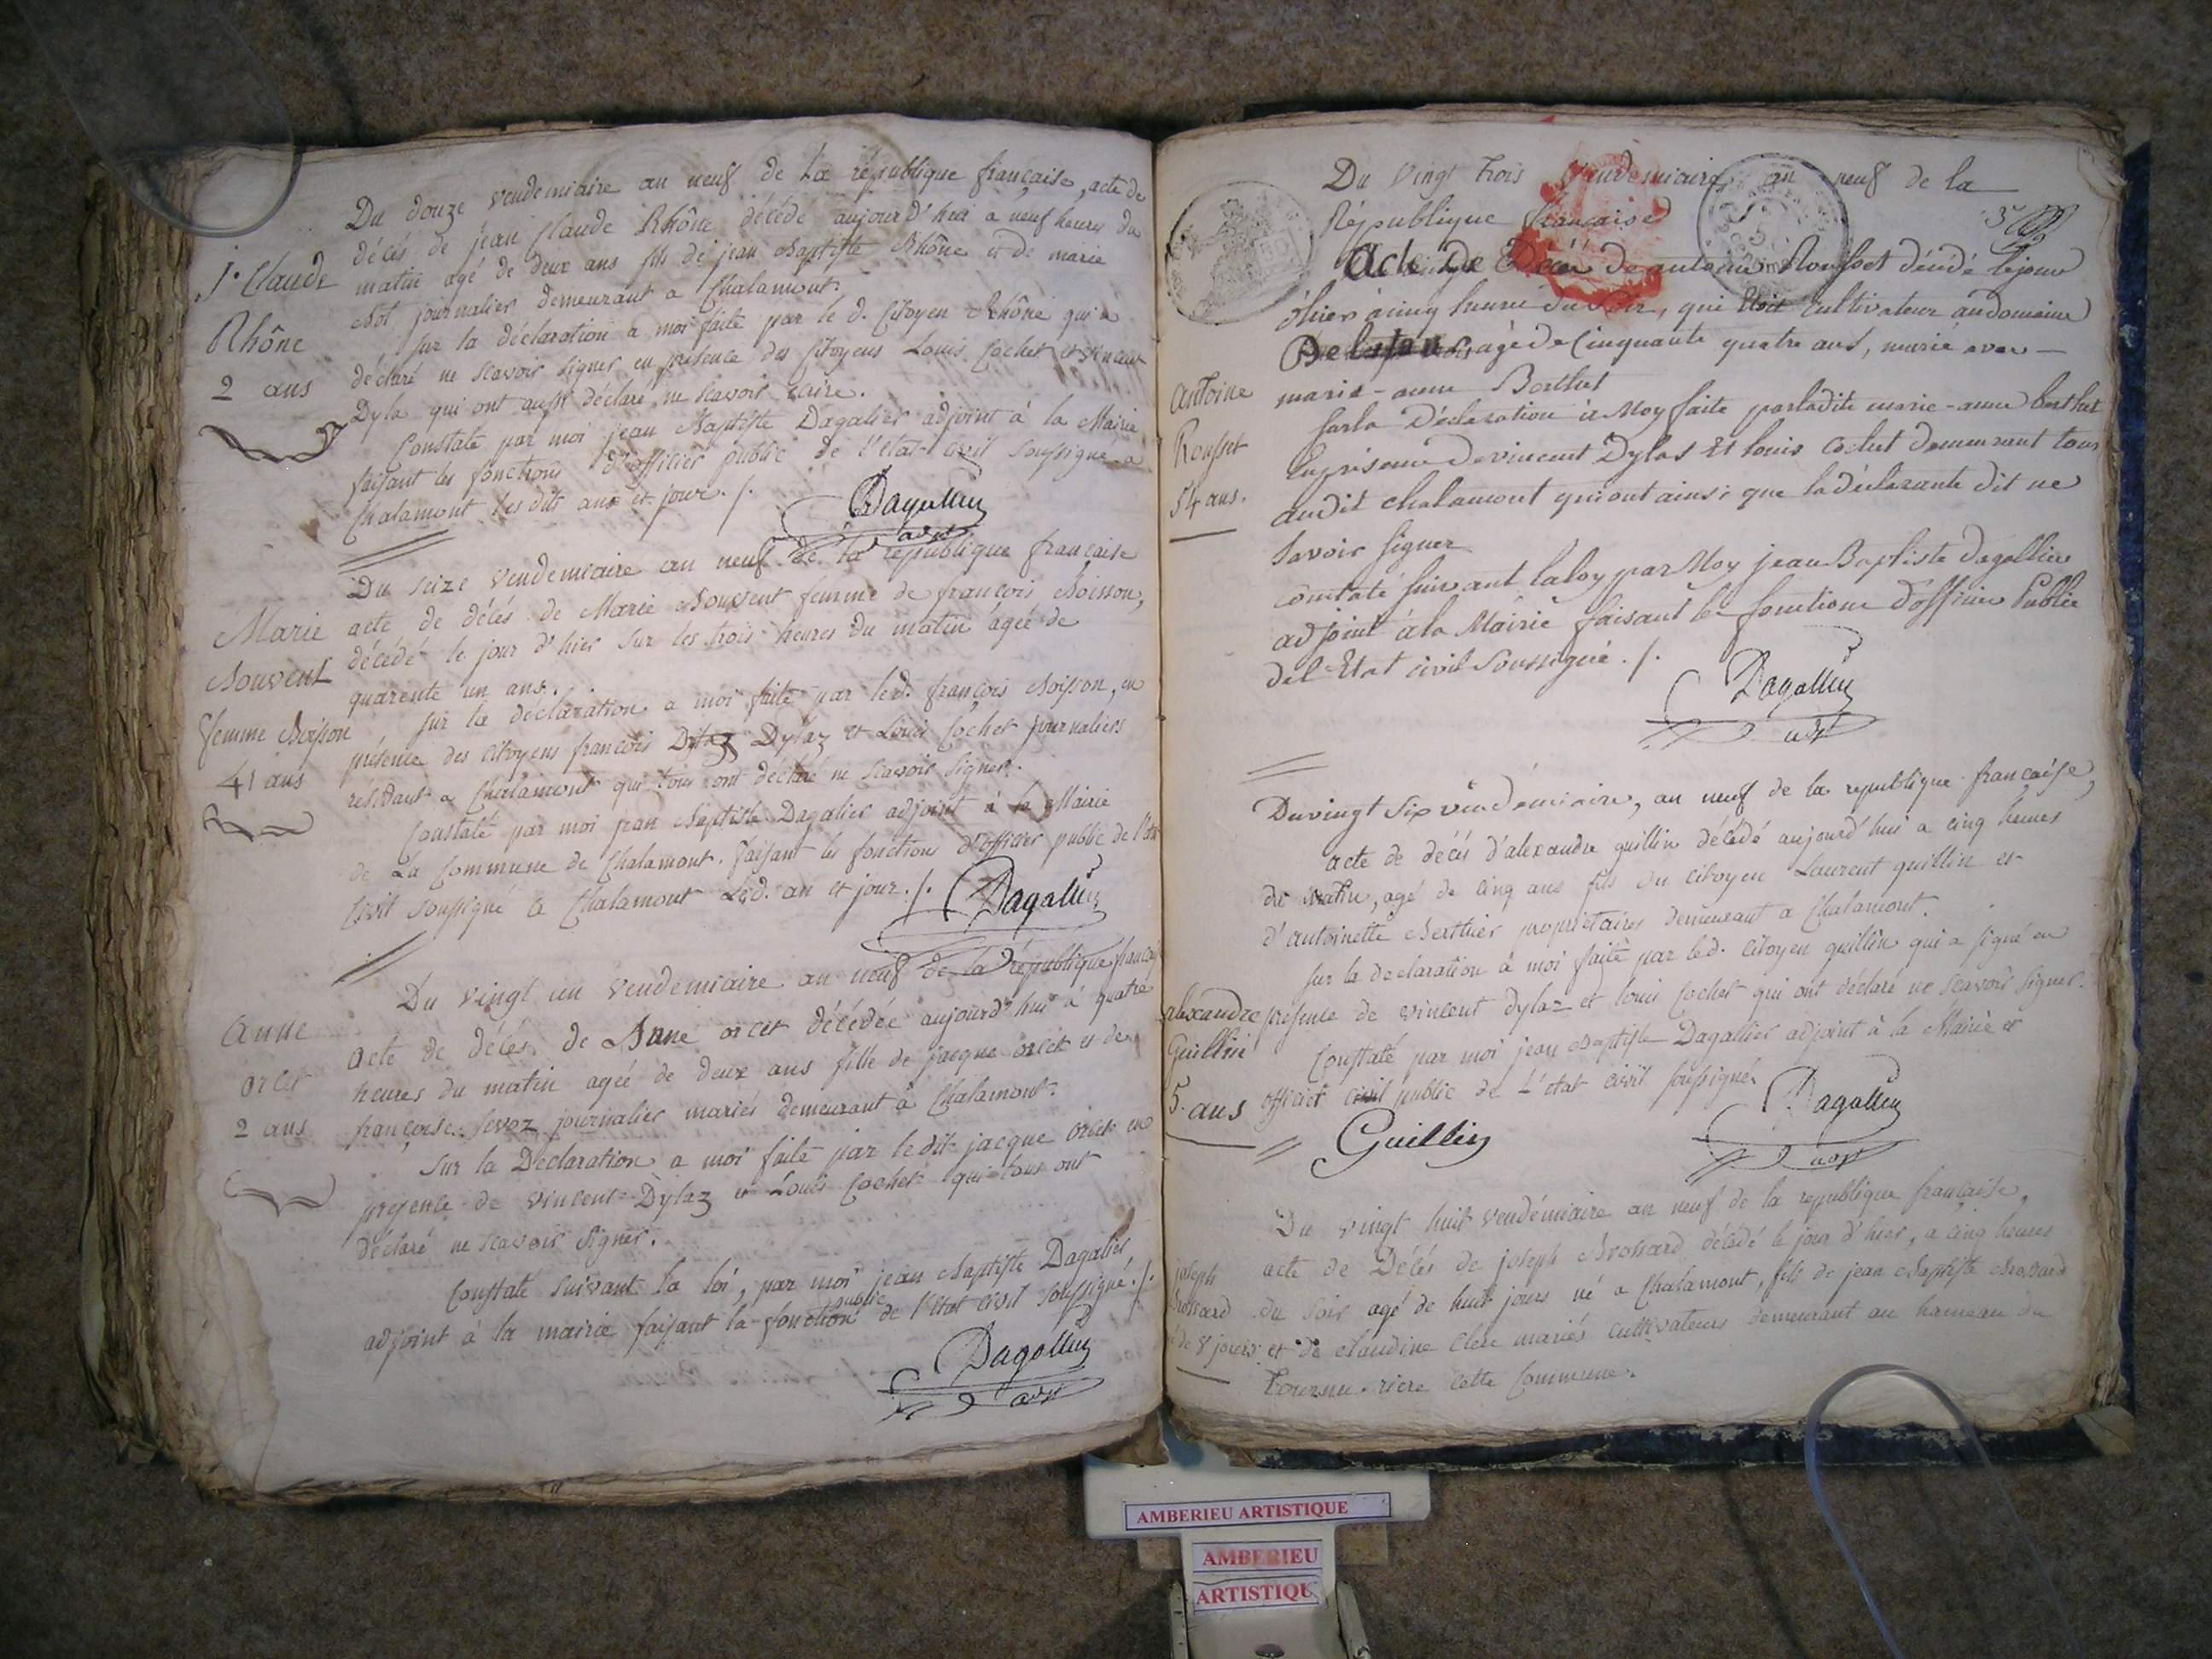 Du douze vendemiaire an neuf de La republique française, acte de
décés de jean Claude Rhône décédé aujourd'hui a neuf heures du
matin agé de deux ans fils de jean Baptiste Rhône et de marie
Not journalier demeurant a Chalamont.
Sur la déclaration a moi faite par le d. Citoyen Rhône qui a
déclaré ne scavoir signer en présence des Citoyens Louis Cochet et vincent
Dyla qui ont aussi déclaré ne scavoir faire.
Constaté par moi jean Baptiste Dagalier adjoint à la Mairie
faisant les fonctions d'officier public de l'état civil soussigné a
Chalamont les dits ans et jour ./.
Dagallier
adjt
J. Claude
Rhône
2 ans
Du seize vendemiaire an neuf de la république française
acte de décés de Marie Bouvent femme de françois Boisson,
décédé le jour d'hier sur les trois heures du matin agée de
quarente un ans.
Sur la déclaration a moi faite par led. françois Boisson, en
présence des citoyens françois Dylaz et Louis Cochet journaliers
résidant a Chalamont qui tous ont déclaré ne scavoir signer.
Constaté par moi jean Baptiste Dagalier adjoint à la Mairie
de La Commune de Chalamont. faisant les fonctions d'officier public de l'état
Civil soussigné a Chalamont Led. an et jour ./.
Dagallier
Marie
Bouvent
femme Boisson
41 ans
Du vingt un vendemiaire an neuf de la république française
acte de décés de Anne orcet décédée aujourd'hui à quatre
heures du matin agée de deux ans fille de jacque orcet et de
françoise Sevoz journalier mariés demeurant à Chalamont.
Sur la Declaration a moi faite par le dit jacque orcet en
presence de vincent Dylaz et Louis Cochet qui tous ont
déclaré ne scavoir signer.
Constaté suivant la loi, par moi jean Baptiste Dagalier
adjoint à la mairie faisant la fonction public de l'état civil soussigné ./.
Dagallier
adjt
anne
orcet
2 ans
Du vingt trois vendémiaire an neuf de la
République française
Acte De Décés de antoine Rousset décédé le jour
d'hier à cinq heures du soir, qui étoit Cultivateur au domaine
agé de Cinquante quatre ans, marié avec
marie-anne Berthet
sur la Déclaration à Moy faite par ladite marie-anne berthet
En présence de vincent Dylas Et louis Cochet demeurant tous
audit chalamont qui ont ainsi que la déclarante dit ne
savoir signer
constaté suivant la loy par Moy jean Baptiste dagallier
adjoint à la Mairie faisant les fonctions d'officier Public
de l'Etat civil Soussigné ./.
Dagallier
adjt
antoine
Rousset
54 ans.
Du vingt six vendémiaire, an neuf de la republique française,
acte de décés d'alexandre guillin décédé aujourd'hui a cinq heures
du matin, agé de cinq ans fils du citoyen Laurent guillin et
d'antoinette Berthier propriétaires demeurant a Chalamont.
Sur la declaration à moi faite par led. citoyen guillin qui a signé en
présence de vincent dylaz et louis Cochet qui ont déclaré ne scavoir signer.
Constaté par moi jean Baptiste Dagallier adjoint à la Mairie et
officier civil public de l'état civil soussigné
Guillin
Dagallier
adjt
alexandre
Guillin
5. ans
Du vingt huit vendémiaire an neuf de la republique française,
acte de Décés de joseph Brossard décédé le jour d'hier, a cinq heures
du soir agé de huit jours né a Chalamont, fils de jean Baptiste Brossard
et de claudine Clerc mariés cultivateurs demeurant au hameau du
Tournu riere cette Commune.
joseph
Brossard
de 8 jours
AMBERIEU ARTISTIQUE
AMBERIEU
ARTISTIQU